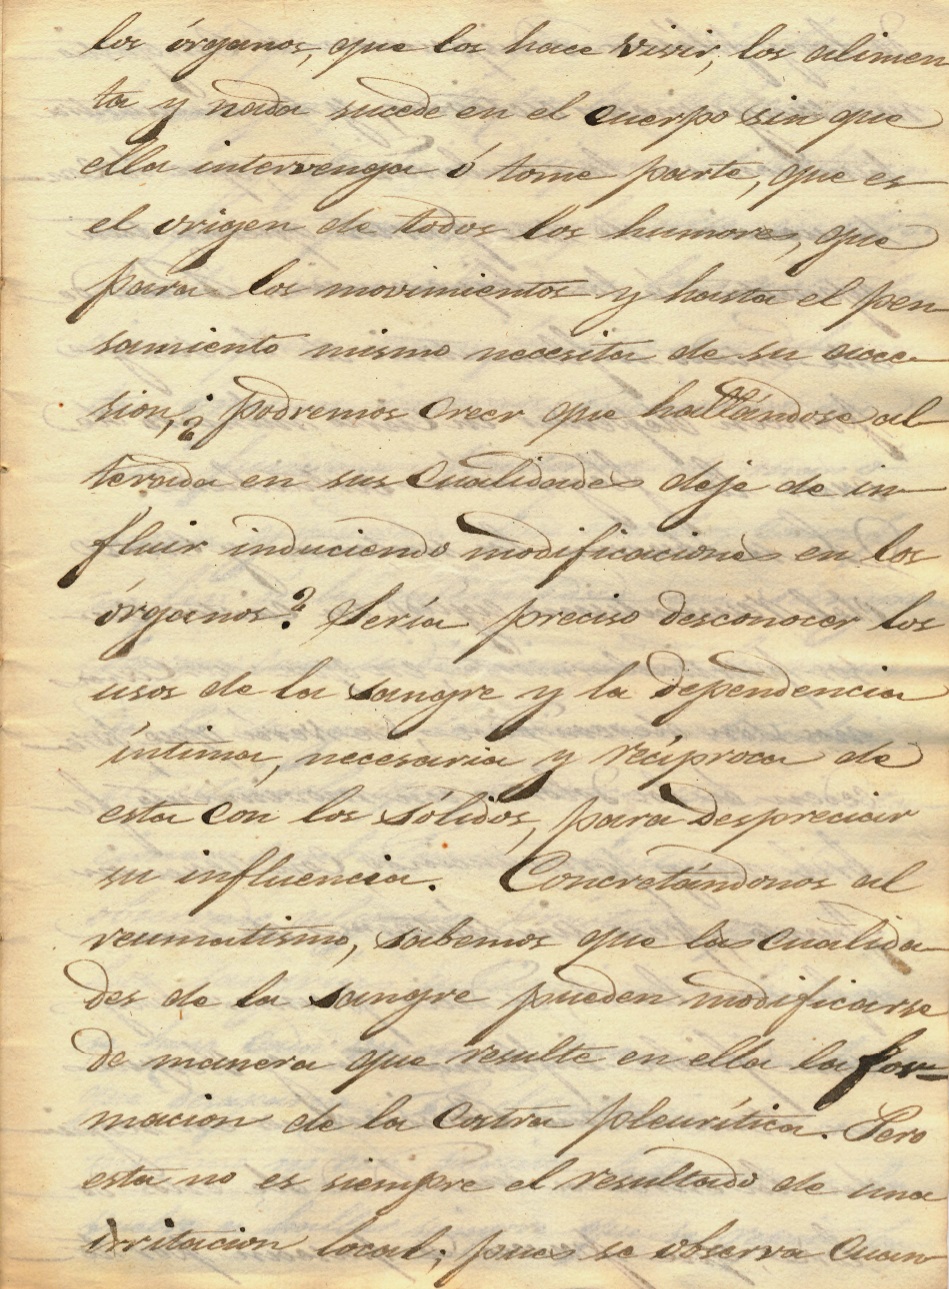 los órganos, que los hace vivir, los alimen
ta y nada sucede en el cuerpo sin que
ella intervenga ó tome parte, que es
el origen de todos los humores, que
para los movimientos y hasta el pen
samiento mismo necesita de su acce
sion, ¿podremos creer que hallándose al
terada en sus cualidades deje de in
fluir induciendo modificaciones en los
órganos? Sería preciso desconocer los
usos de la sangre y la dependencia
íntima, necesaria y recíproca de
esta con los sólidos, para despreciar
su influencia. Concretándonos al
reumatismo, sabemos que las cualida
des de la sangre pueden modificarse
de manera que resulte en ella la for-
macion de la costra pleurítica. Pero
esta no es siempre el resultado de una
irritacion local; pues se observa cuan